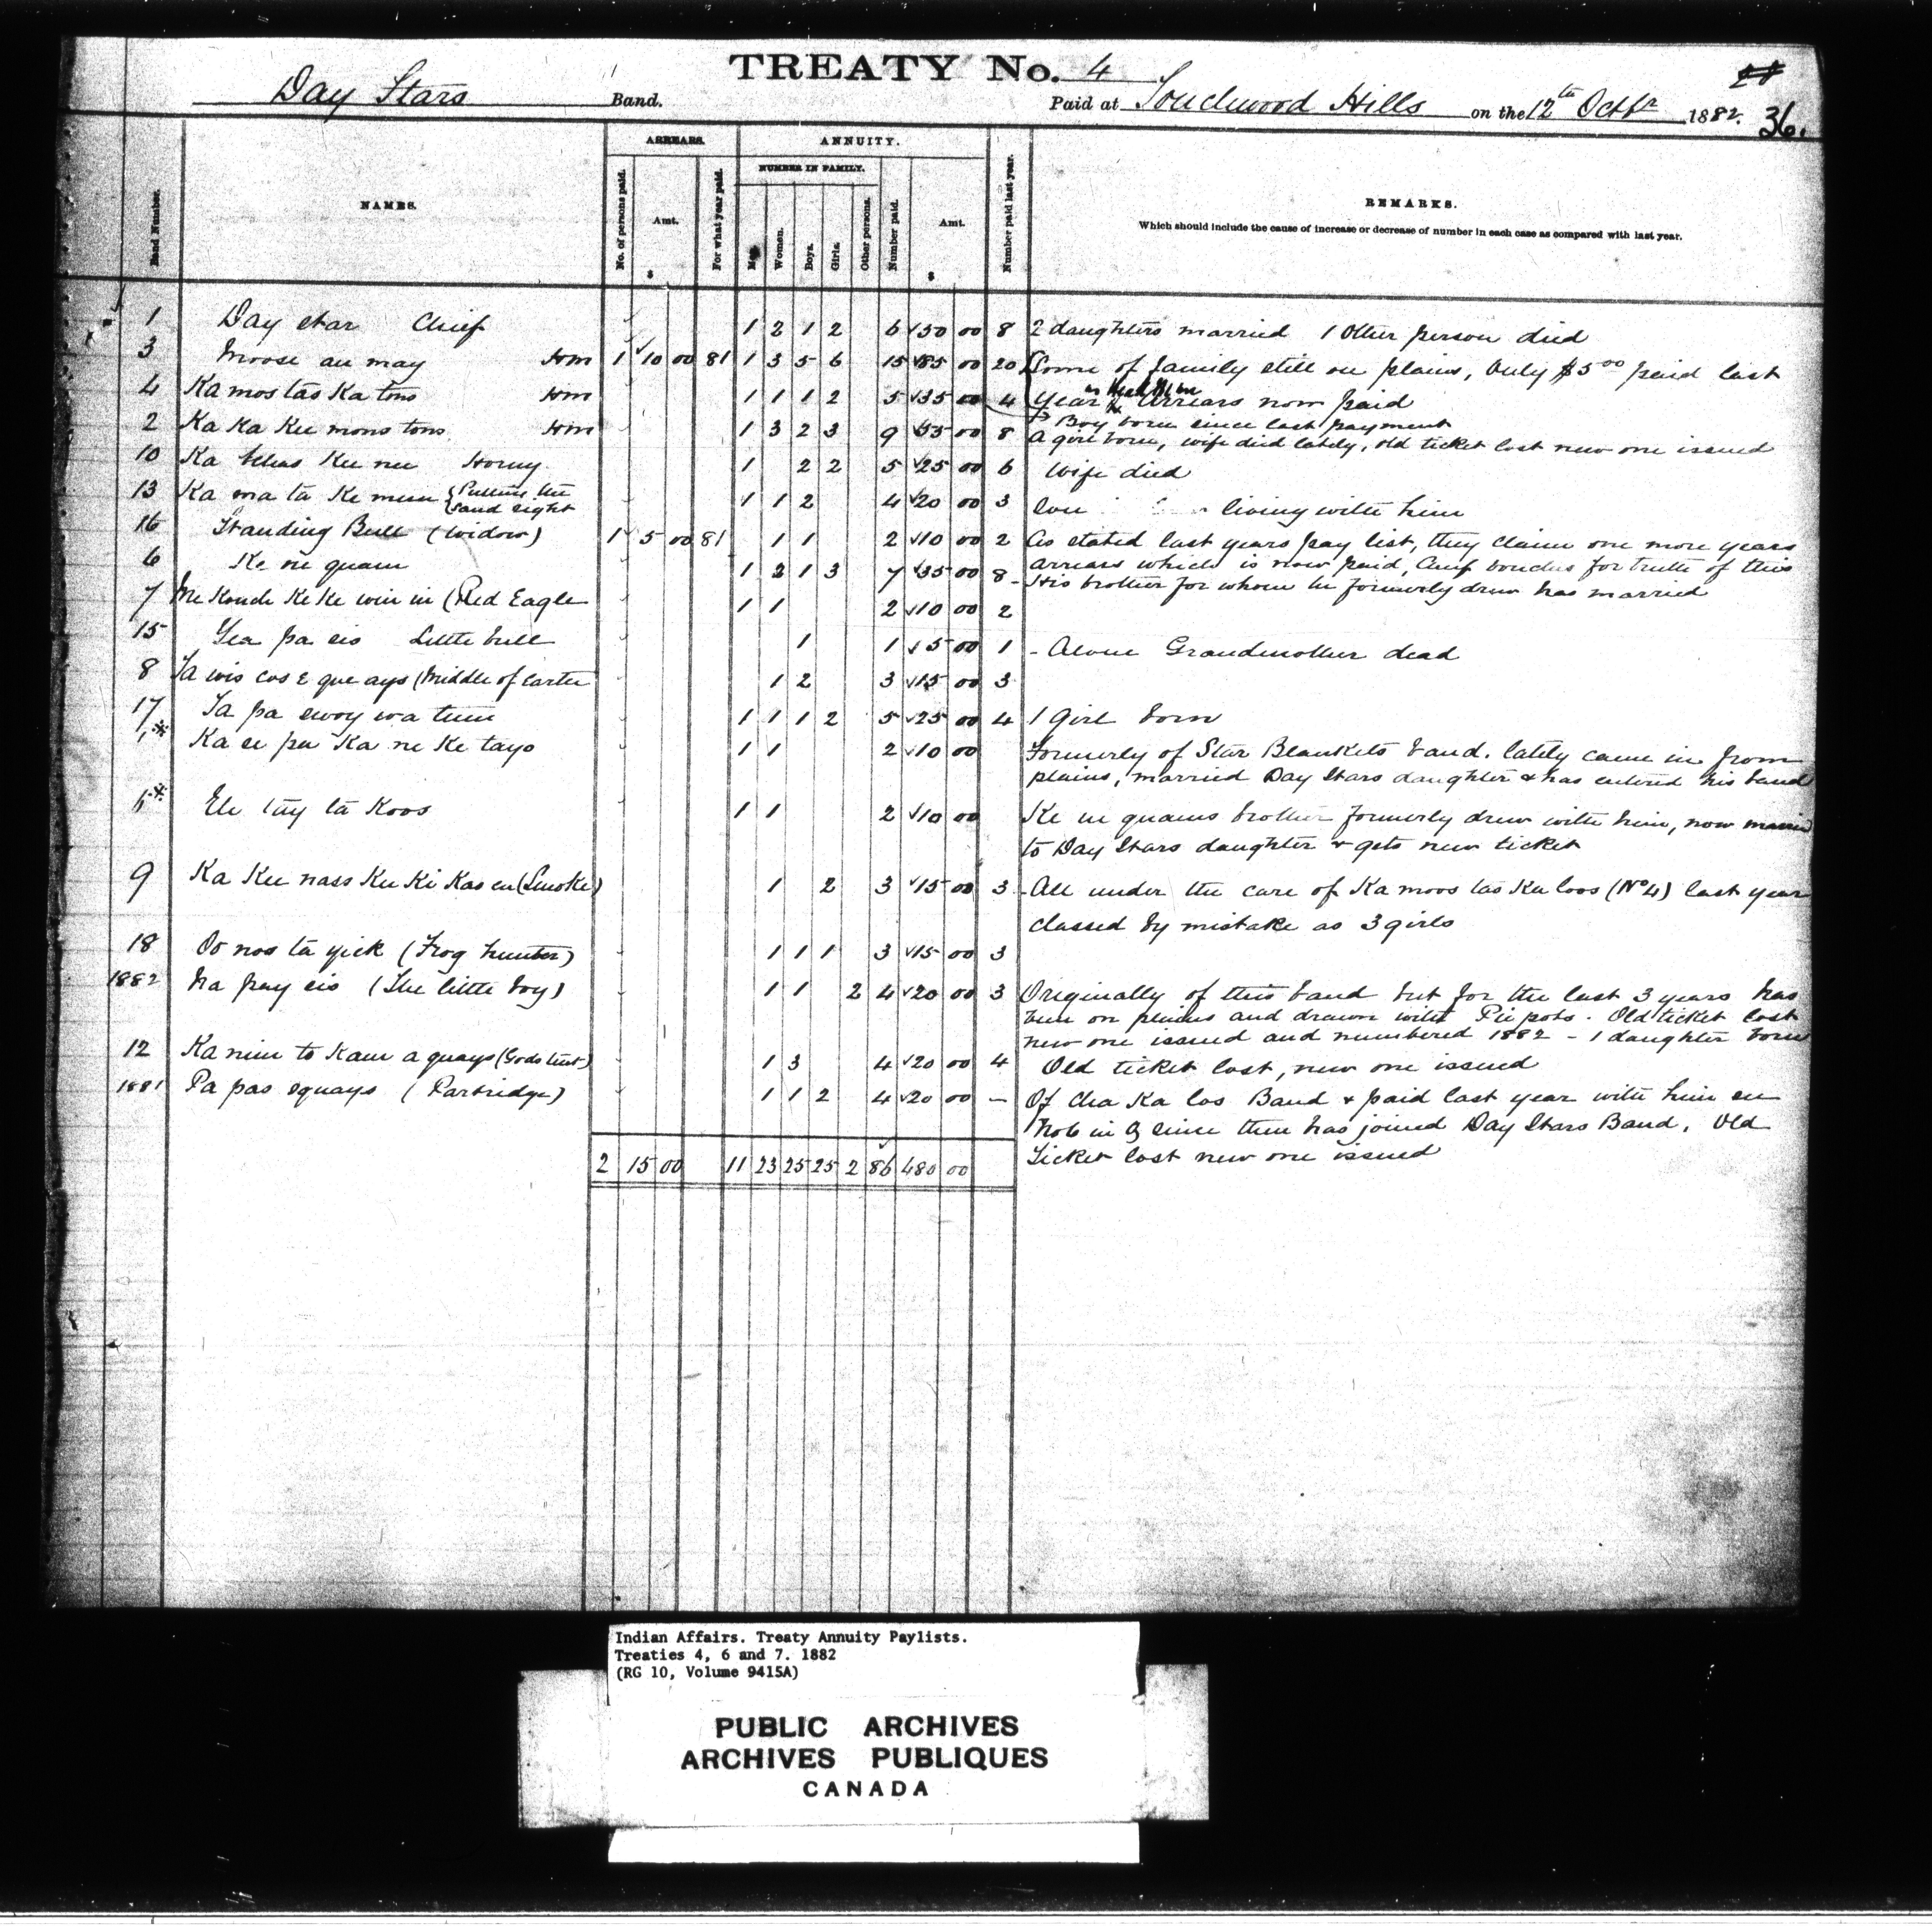 TREATY No. 4
36.
Day Stars Band.
Paid at Touchwood Hills on the 12th Octbr 1882.
ARREARS.
ANNUITY.
NUMBER IN FAMILY.
Band Number.
NAMES.
No. of persons paid.
Amt.
$
For what year paid.
Men.
Women.
Boys.
Girls.
Other persons.
Number paid.
Amt.
$
Number paid last year.
REMARKS.
Which should include the cause of increase or decrease of number in each case as compared with last year.
1 Day star Chief 1 2 1 2 6 50 00 8 2 daughters married 1 Other person died
3 Moose au may Hm 1 10 00 81 1 3 5 6 15 85 00 20 Some of family still on plains, Only $5.00 paid last
4 Ka mos tas Ka toos Hm 1 1 1 2 5 35 00 4 year Arrears now paid
Boy born since last payment
2 Ka Ka Kee mons tons Hm 1 3 2 3 9 55 00 8 A girl born, wife died lately, old ticket lost new one issued
10 Ka Kee nee Horny 1 2 2 5 25 00 6 Wife died
13 Ka ma ta Ke mew { Putting the sand right 1 1 2 4 20 00 3 living with him
16 Standing Bull (Widow) 1 5 00 81 1 1 2 10 00 2 As stated last years pay list, they claim one more years
arrears which is now paid, Chief vouches for truth of this
6 Ke ne quam 1 2 1 3 7 35 00 8 - His brother for whom he formerly drew has married
7 Me Konch Ke Ke win in (Red Eagle 1 1 2 10 00 2
15 Yea pa sis Little bull 1 1 5 00 1 - Alone Grandmother dead
8 Ta wis cos E que ays (Middle of Earth 1 2 3 15 00 3
17 Ta pa swoy wa tum 1 1 1 2 5 25 00 4 1 Girl born
1,* Ka se pu Ka ne Ke tayo 1 1 2 10 00 Formerly of Star Blankets band. lately came in from
plains, married Day Stars daughter & has entered his band
5* Eh tuy ta Koos 1 1 2 10 00 Ke ne quams brother formerly drew with him, now married
to Day Stars daughter & gets new ticket
9 Ka Kee nass Ku Ki Kas en (Smoke) 1 2 3 15 00 3 - All under the care of Ka moos tas Ka toos (No 4) last year
classed by mistake as 3 girls
18 Oo nos ta yick (Frog hunter) 1 1 1 3 15 00 3
1882 Na pay sis (The little boy) 1 1 2 4 20 00 3 Originally of this band but for the last 3 years has
been on plains and drawn with Pie pots. Old ticket lost
new one issued and numbered 1882 - 1 daughter born
12 Ka nim to Kam a quays (Gods tent) 1 3 4 20 00 4 Old ticket lost, new one issued
1881 Pa pas equays (Partridge) 1 1 2 4 20 00 - Of Cha Ka tas Band & paid last year with him
since then has joined Day Stars Band. Old
2 15 00 11 23 25 25 2 86 480 00 Ticket lost new one issued
Indian Affairs. Treaty Annuity Paylists.
Treaties 4, 6 and 7. 1882
(RG 10, Volume 9415A)
PUBLIC ARCHIVES
ARCHIVES PUBLIQUES
CANADA